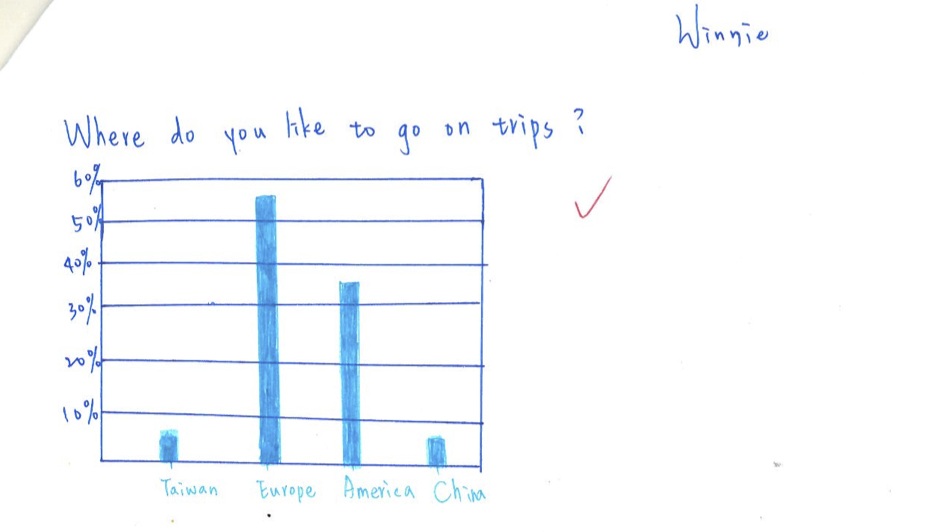 Winnie
Where do you like to go on trips?
60%
50%
40%
30%
20%
10%
Taiwan Europe America China